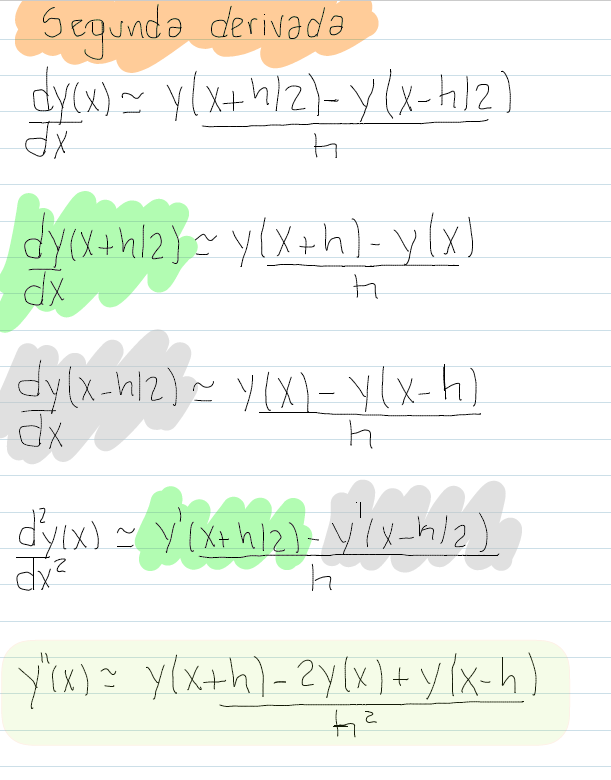 Segunda derivada
dy(x) ≃ y(x+h/2)-y(x-h/2)
dx h
dy(x+h/2) ≃ y(x+h)-y(x)
dx h
dy(x-h/2) ≃ y(x)-y(x-h)
dx h
d²y(x) ≃ y'(x+h/2)-y'(x-h/2)
dx² h
y''(x) ≃ y(x+h)-2y(x)+y(x-h)
h²